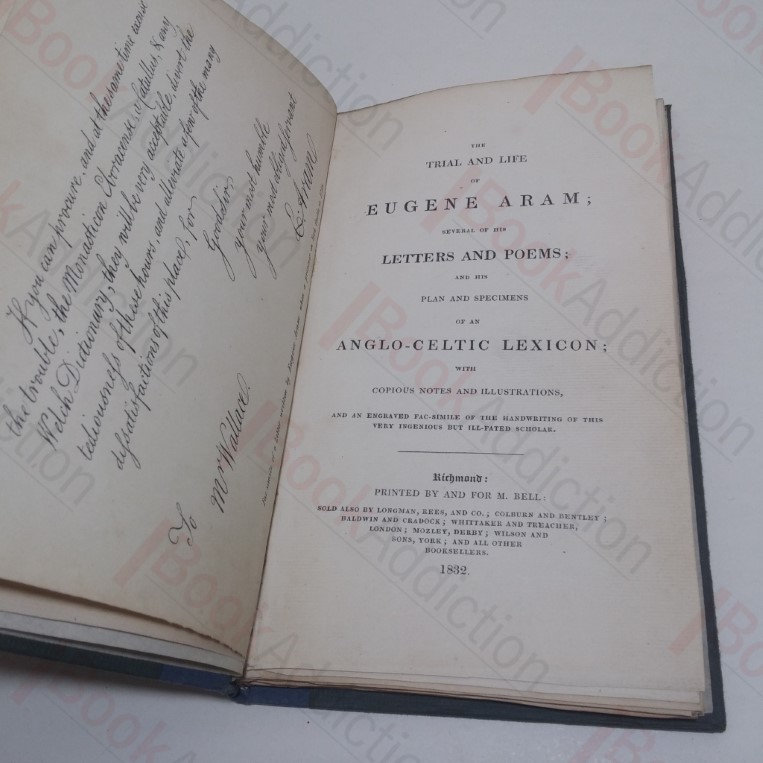 If you can procure, and at the same time excuse
the trouble, the Monasticon Eboracense, a Catullus, & any
Welch Dictionary, they will be very acceptable, divert the
tediousness of these hours, and alleviate a few of the many
dissatisfactions of this place, for
Good Sir,
your most humble
your most obliged servant
E. Aram
To Mr Wallace.
THE
TRIAL AND LIFE
OF
EUGENE ARAM;
SEVERAL OF HIS
LETTERS AND POEMS;
AND HIS
PLAN AND SPECIMENS
OF AN
ANGLO-CELTIC LEXICON;
WITH
COPIOUS NOTES AND ILLUSTRATIONS,
AND AN ENGRAVED FAC-SIMILE OF THE HANDWRITING OF THIS
VERY INGENIOUS BUT ILL-FATED SCHOLAR.
Richmond:
PRINTED BY AND FOR M. BELL:
SOLD ALSO BY LONGMAN, REES, AND CO.; COLBURN AND BENTLEY;
BALDWIN AND CRADOCK; WHITTAKER AND TREACHER,
LONDON; MOZLEY, DERBY; WILSON AND
SONS, YORK; AND ALL OTHER
BOOKSELLERS.
1832.
BookAddiction